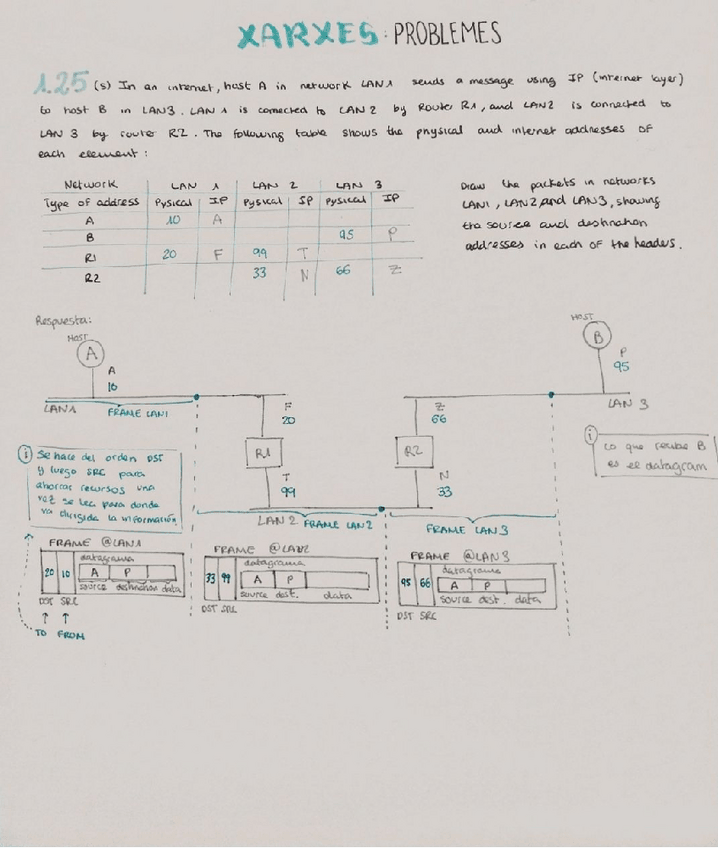 XARXES: PROBLEMES
1.25 (s) In an internet, host A in network LAN1 sends a message using IP (internet layer)
to host B in LAN3. LAN 1 is connected to LAN 2 by Router R1, and LAN2 is connected to
LAN 3 by router R2. The following table shows the physical and internet addresses of
each element:
Network LAN 1 LAN 2 LAN 3
Type of address Pysical IP Pysical IP Pysical IP
A 10 A
B 95 P
R1 20 F 99 T
R2 33 N 66 Z
Draw the packets in networks
LAN1, LAN2 and LAN3, showing
the source and destination
addresses in each of the headers.
Respuesta:
HOST
A
A
10
LAN1 FRAME LAN1
F
20
R1
T
99
LAN 2 FRAME LAN2
Z
66
R2
N
33
FRAME LAN3
HOST
B
P
95
LAN 3
i Se hace del orden DST
y luego SRC para
ahorrar recursos una
vez se lee para donde
va dirigida la información
i Lo que recibe B
es el datagram
FRAME @LAN1
datagrama
20 10 A P
source destination data
DST SRC
TO FROM
FRAME @LAN2
datagrama
33 99 A P
source dest. data
DST SRC
FRAME @LAN3
datagrama
95 66 A P
source dest. data
DST SRC